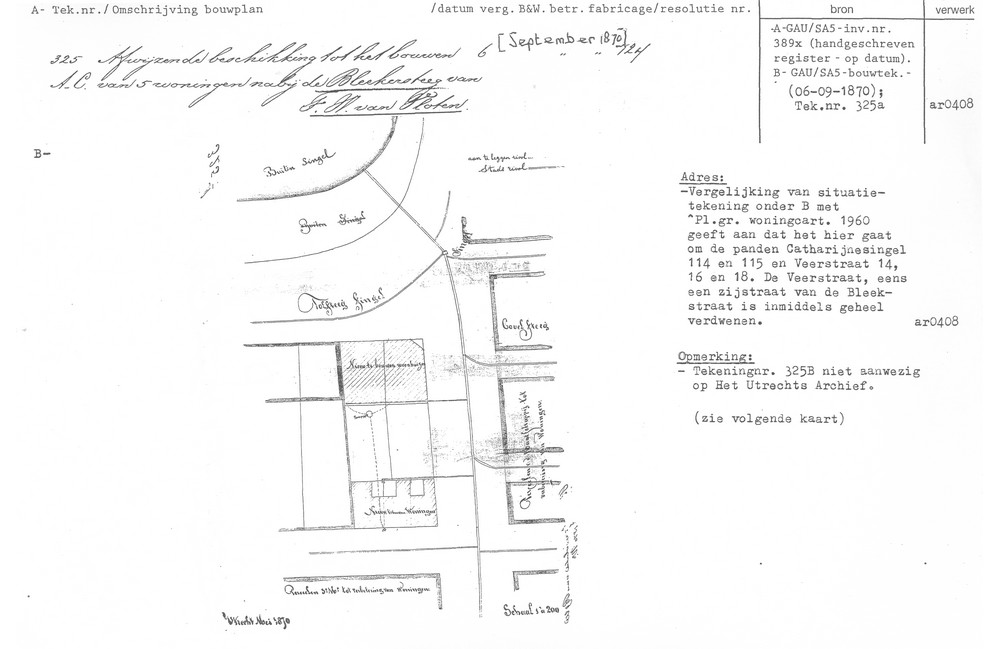 A- Tek.nr./ Omschrijving bouwplan /datum verg. B&W. betr. fabricage/resolutie nr.
bron
verwerk
325 Afwijzende beschikking tot het bouwen 6 [September 1870] /124
A.C. van 5 woningen nabij de Bleekersteeg van
F. W. van Ploten.
-A-GAU/SA5-inv.nr.
389x (handgeschreven
register - op datum).
B- GAU/SA5-bouwtek.-
(06-09-1870);
Tek.nr. 325a
ar0408
B-
Buiten Singel
aan te leggen riool
Stads riool
Buiten Singel
Catharijne Singel
Nieuw te bouwen woningen
Nieuw te bouwen Woningen
Utrecht Mei 1870
Schaal 1 à 200
Adres:
-Vergelijking van situatie-
tekening onder B met
^Pl.gr. woningcart. 1960
geeft aan dat het hier gaat
om de panden Catharijnesingel
114 en 115 en Veerstraat 14,
16 en 18. De Veerstraat, eens
een zijstraat van de Bleek-
straat is inmiddels geheel
verdwenen.
ar0408
Opmerking:
- Tekeningnr. 325B niet aanwezig
op Het Utrechts Archief.
(zie volgende kaart)